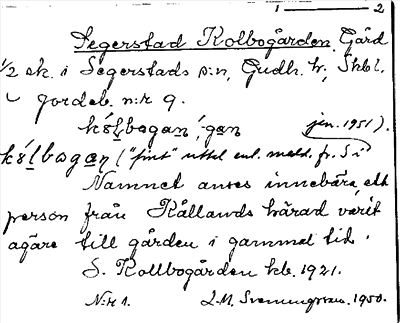 1 ——— 2
Segerstad Kolbogården. Gård
1/2 sk. i Segerstads s:n, Gudh. h; Skbl.
jordeb. n:r 9.
kó̱lbogan, -gan jan. 1951).
kó̱lbogan ("fint" uttal enl. medd. fr. S i
Namnet anses innebära, att
person från Kållands härad varit
ägare till gården i gammal tid.
S. Kollbogården kb. 1921.
N:r 1. L.M. Svenungsson. 1950.